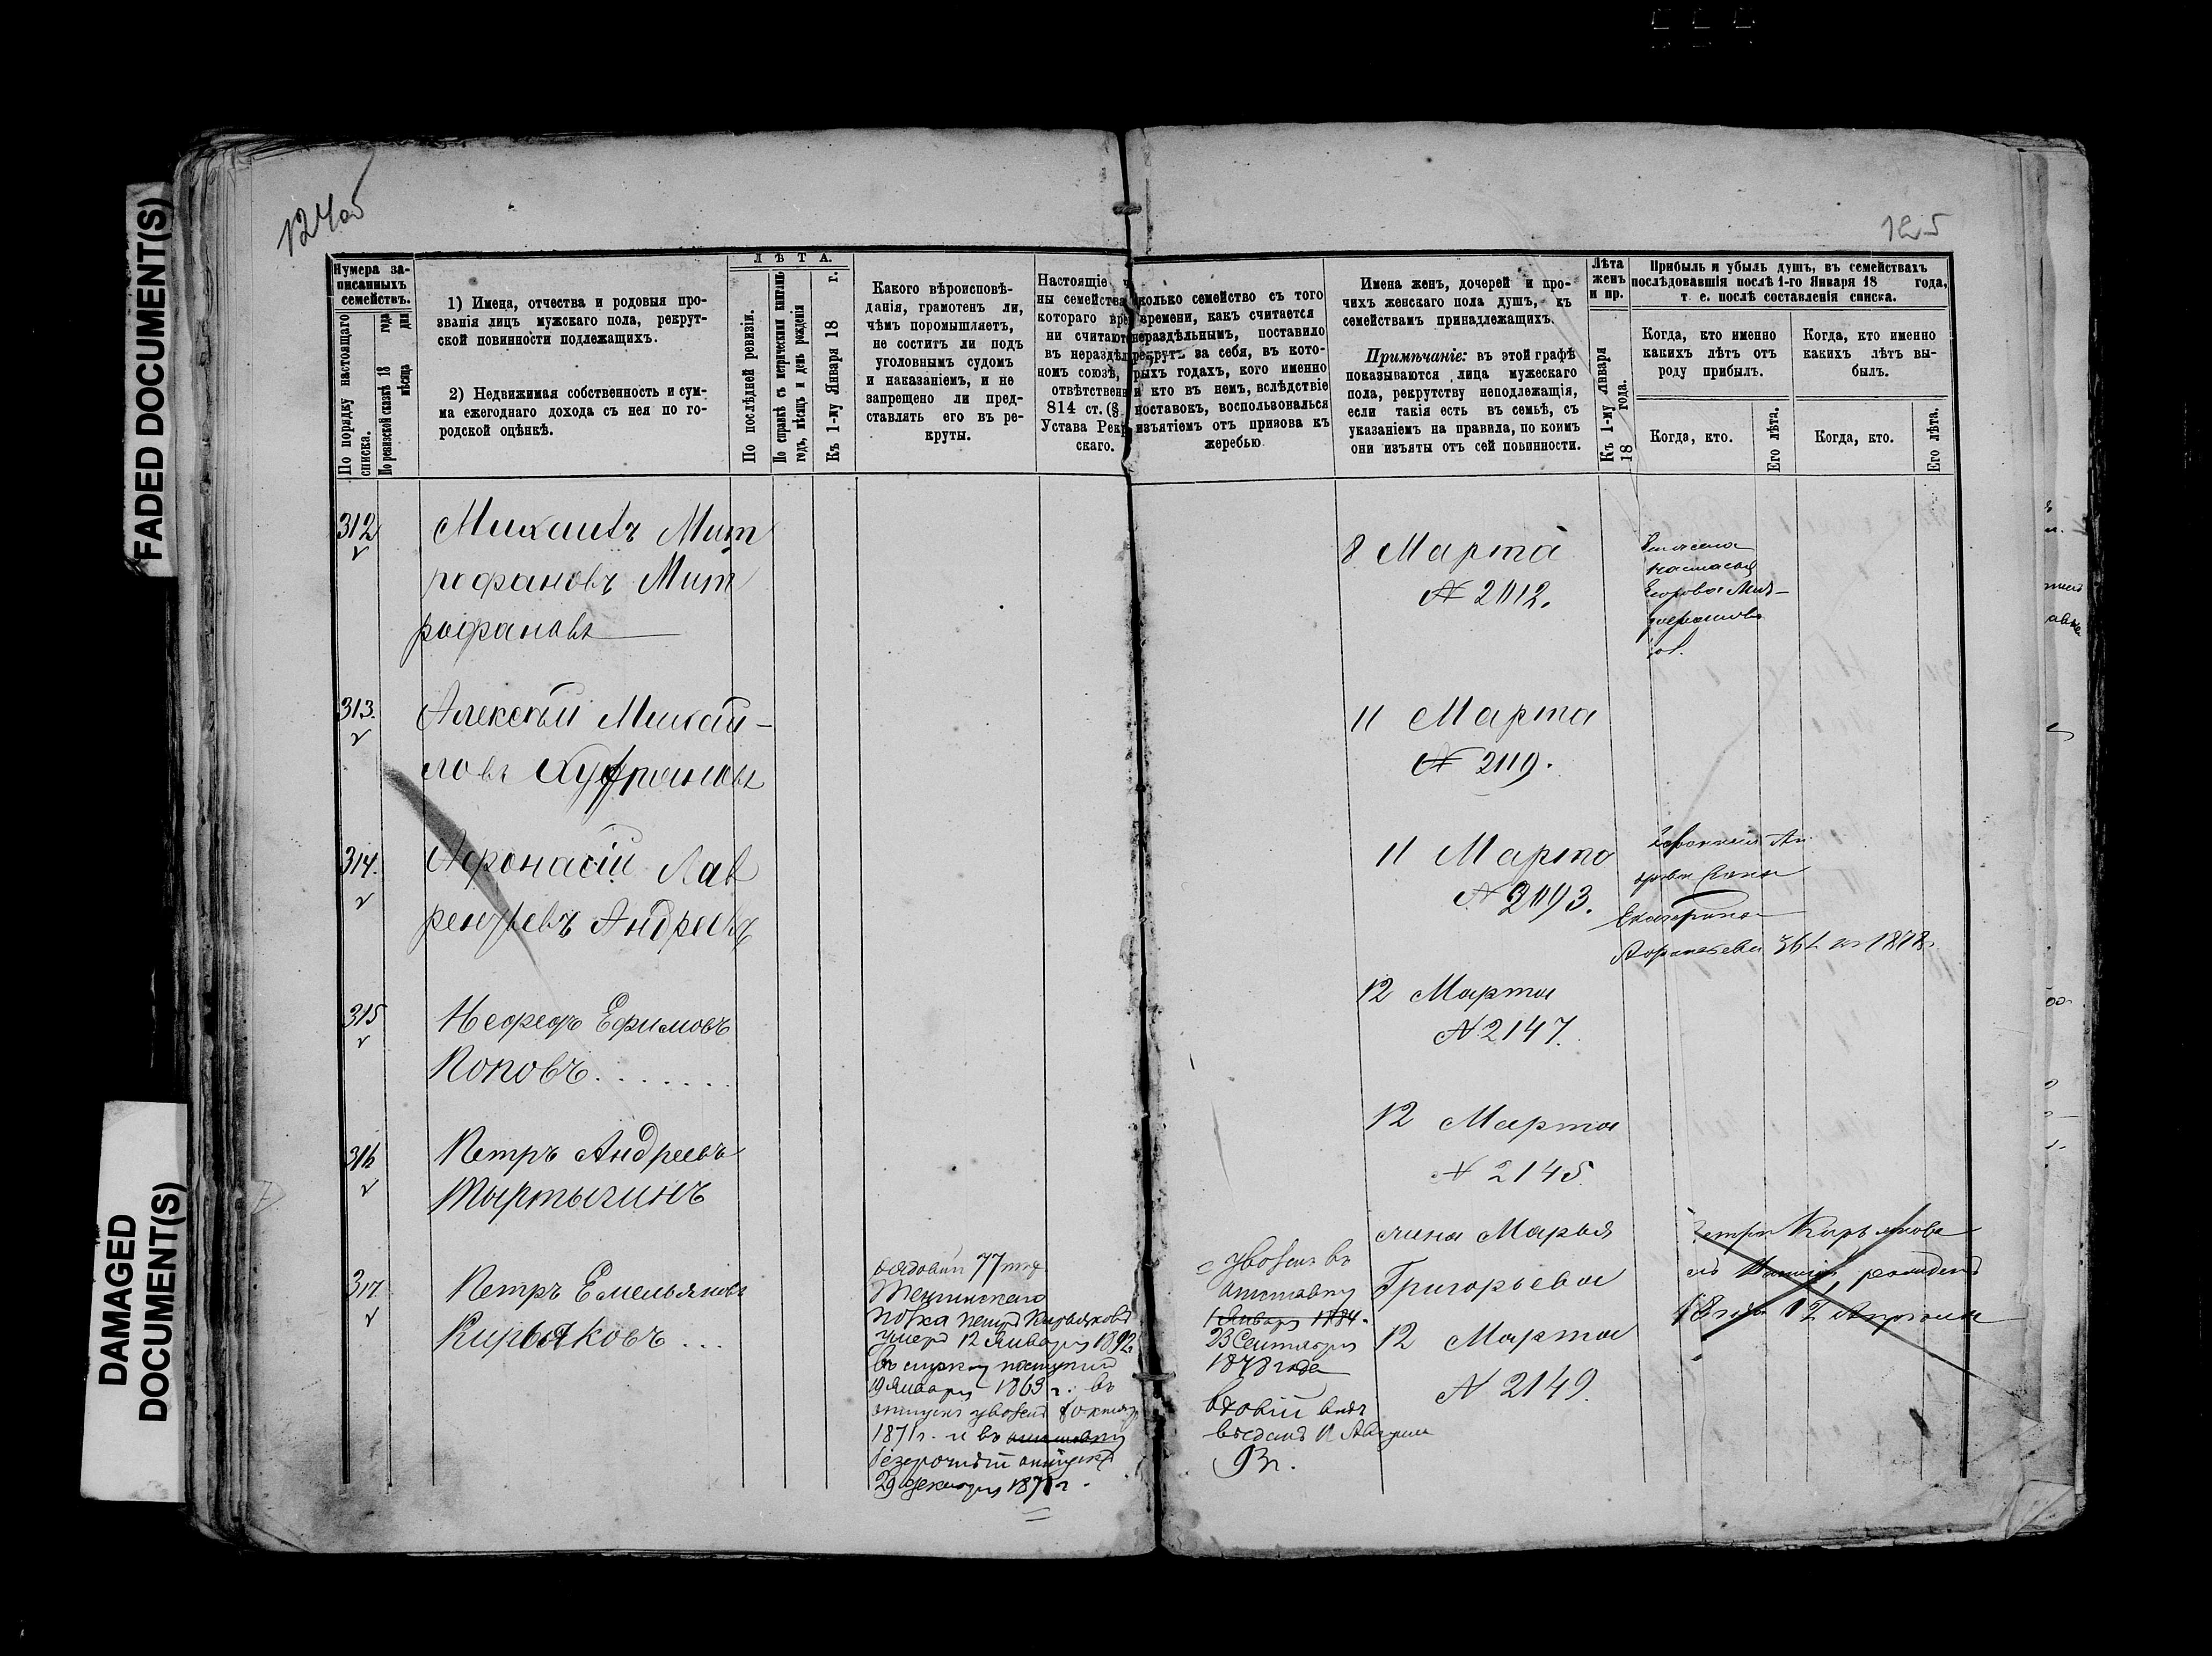 FADED DOCUMENT(S)
DAMAGED
DOCUMENT(S)
124об
125
Нумера за-
писанныхъ
семействъ.
По порядку настоящаго
списка.
По ревизской сказкѣ 18 года
мѣсяца дня
1) Имена, отчества и родовыя про-
званія лицъ мужскаго пола, рекрут-
ской повинности подлежащихъ.
2) Недвижимая собственность и сум-
ма ежегоднаго дохода съ нея по го-
родской оцѣнкѣ.
ЛѢТА.
По послѣдней ревизіи.
По справкѣ съ метрическими книгами
годъ, мѣсяцъ и день рожденія
Къ 1-му Января 18 г.
Какого вѣроисповѣ-
данія, грамотенъ ли,
чѣмъ поромышляетъ,
не соститъ ли подъ
уголовнымъ судомъ
и наказаніемъ, и не
запрещено ли пред-
ставлять его въ ре-
круты.
Настоящіе ч
ны семейства
котораго вре
ни считают
въ нераздѣл
номъ союзѣ,
отвѣтственн
814 ст. (§
Устава Рекр
скаго.
колько семейство съ того
времени, какъ считается
нераздѣльнымъ, поставило
рекрутъ за себя, въ кото-
рыхъ годахъ, кого именно
и кто въ немъ, вслѣдствіе
поставокъ, воспользовался
изъятіемъ отъ призова къ
жеребью
Имена женъ, дочерей и про-
чихъ женскаго пола душъ, къ
семействамъ принадлежащихъ.
Примѣчаніе: въ этой графѣ
показываются лица мужескаго
пола, рекрутству неподлежащія,
если такія есть въ семьѣ, съ
указаніемъ на правила, по коимъ
они изъяты отъ сей повинности.
Лѣта
женъ
и пр.
Къ 1-му Января
18 года.
Прибыль и убыль душъ, въ семействахъ
послѣдовавшія послѣ 1-го Января 18 года,
т. е. послѣ составленія списка.
Когда, кто именно
какихъ лѣтъ отъ
роду прибылъ.
Когда, кто именно
какихъ лѣтъ вы-
былъ.
Когда, кто.
Его лѣта.
Когда, кто.
Его лѣта.
312
Михаилъ Мит
рофановъ Мит
рофановъ
8 Марта
№ 2112.
Настасья
Егорова Мит-
313.
Алексѣй Михай-
ловъ
11 Марта
№ 2119.
314.
Афонасій Лав
рентьевъ Андреевъ
11 Марта
Екатерина
Афонасьева 1878
315
Нефедъ Ефимовъ
Поповъ.......
12 Марта
№ 2147.
316
Петръ Андреевъ
12 Марта
№ 2145.
317
Петръ Емельяновъ
Кирьяковъ ...
рядовой 77 пѣх
Тенгинскаго
полка Петръ Кирьяковъ
умеръ 12 Января 1892
въ службу поступилъ
19 Января 1863 г. въ
отпускъ уволенъ 8 октяб
1871 г. и въ отставку
безсрочный отпускъ
29 декабря 1871 г.
уволенъ въ
отставку
1 Января 1884.
23 Сентября
1878 года
вдовій видъ
выданъ Августа
93 г.
Марья
Григорьева
12 Марта
№ 2149.
Петра Кирьякова
12 Апрѣля